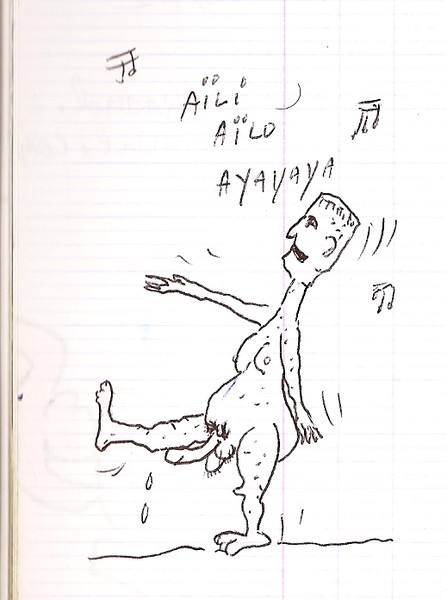 AÏLÏ
AÏLO
AYAYAYA